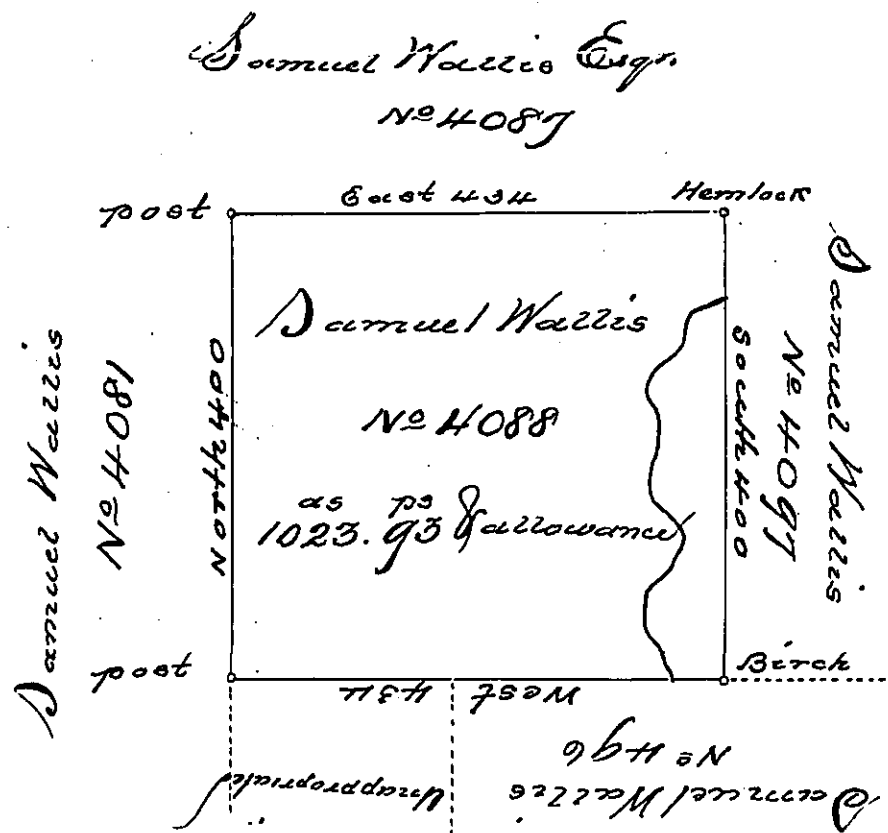 Samuel Wallis Esqr.
No 4087
post East 434 Hemlock
Samuel Wallis
No 4081
North 400
Samuel Wallis
No 4088
as ps
1023. 93 & allowance
South 400
No 4097
Samuel Wallis
post
West 434
Birch
Unappropriate
No 496
Samuel Wallis